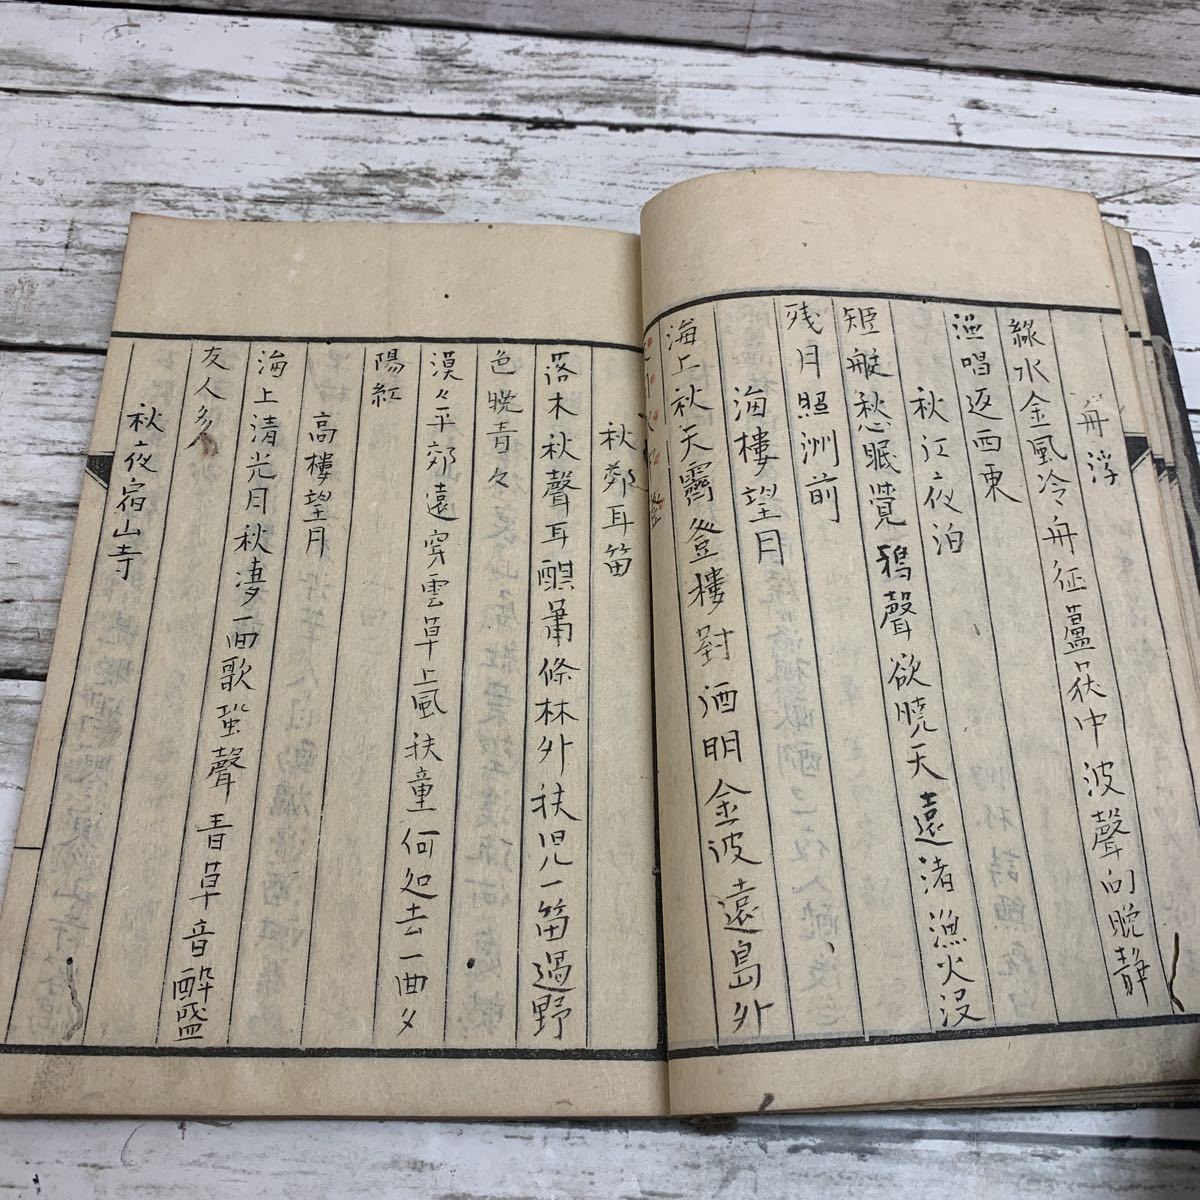 舟浮
綠水金風冷舟征蘆荻中波聲向晚靜
漁唱返西東
秋江夜泊
短艇愁眠覺鴉聲欲曉天遠渚漁火没
残月照洲前
海樓望月
海上秋天霽登樓對酒明金波遠島外
秋郊耳笛
落木秋聲耳 蕭條林外牧児一笛過野
色晚青々
漠々平郊遠穿雲草上風牧童何処去一曲夕
陽紅
高樓望月
海上清光月秋凄一面歌蛩聲青草音酔盛
友人多
秋夜宿山寺